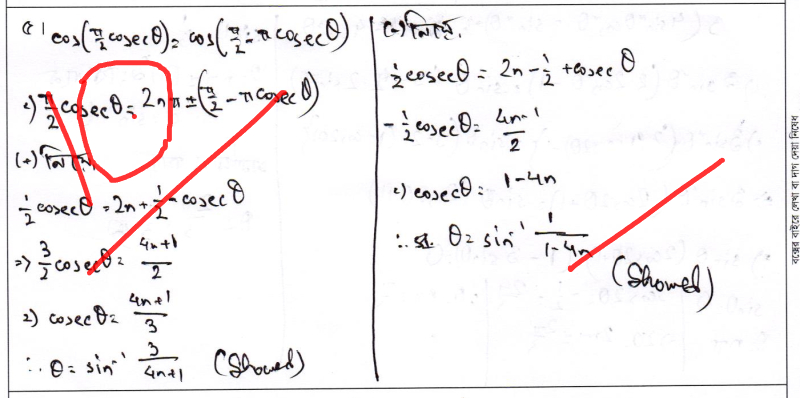 cos(π/2 cosecθ) = cos(π/2 - π cosecθ)
=) π/2 cosecθ = 2nπ ± (π/2 - π cosecθ)
(+) নিয়ে,
1/2 cosecθ = 2n + 1/2 - cosecθ
=> 3/2 cosecθ = 4n+1/2
=) cosecθ = 4n+1/3
∴ θ = sin⁻¹ 3/4n+1 (Showed)
(-) নিয়ে,
1/2 cosecθ = 2n - 1/2 + cosecθ
- 1/2 cosecθ = 4n-1/2
=) cosecθ = 1-4n
∴ θ = sin⁻¹ 1/1-4n
(Showed)
বক্সের বাইরে লেখা বা দাগ দেয়া নিষেধ